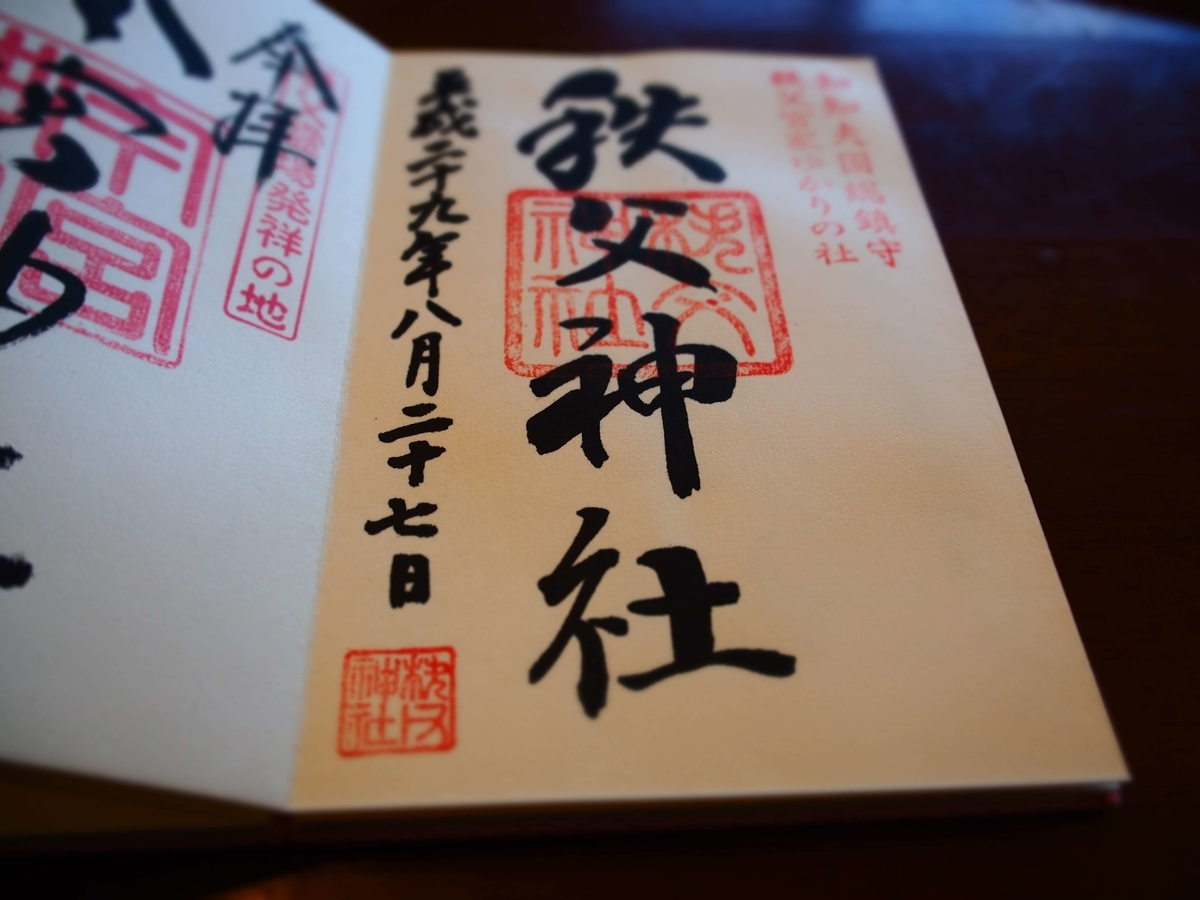 知知夫国総鎮守
秩父宮家ゆかりの社
秩父神社
秩父神社
平成二十九年八月二十七日
秩父神社
奉拝
発祥の地